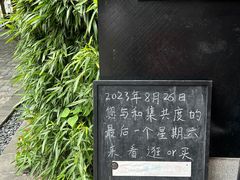 2023年8月26日
您与和集共度的
最后一个星期六
来看逛or买